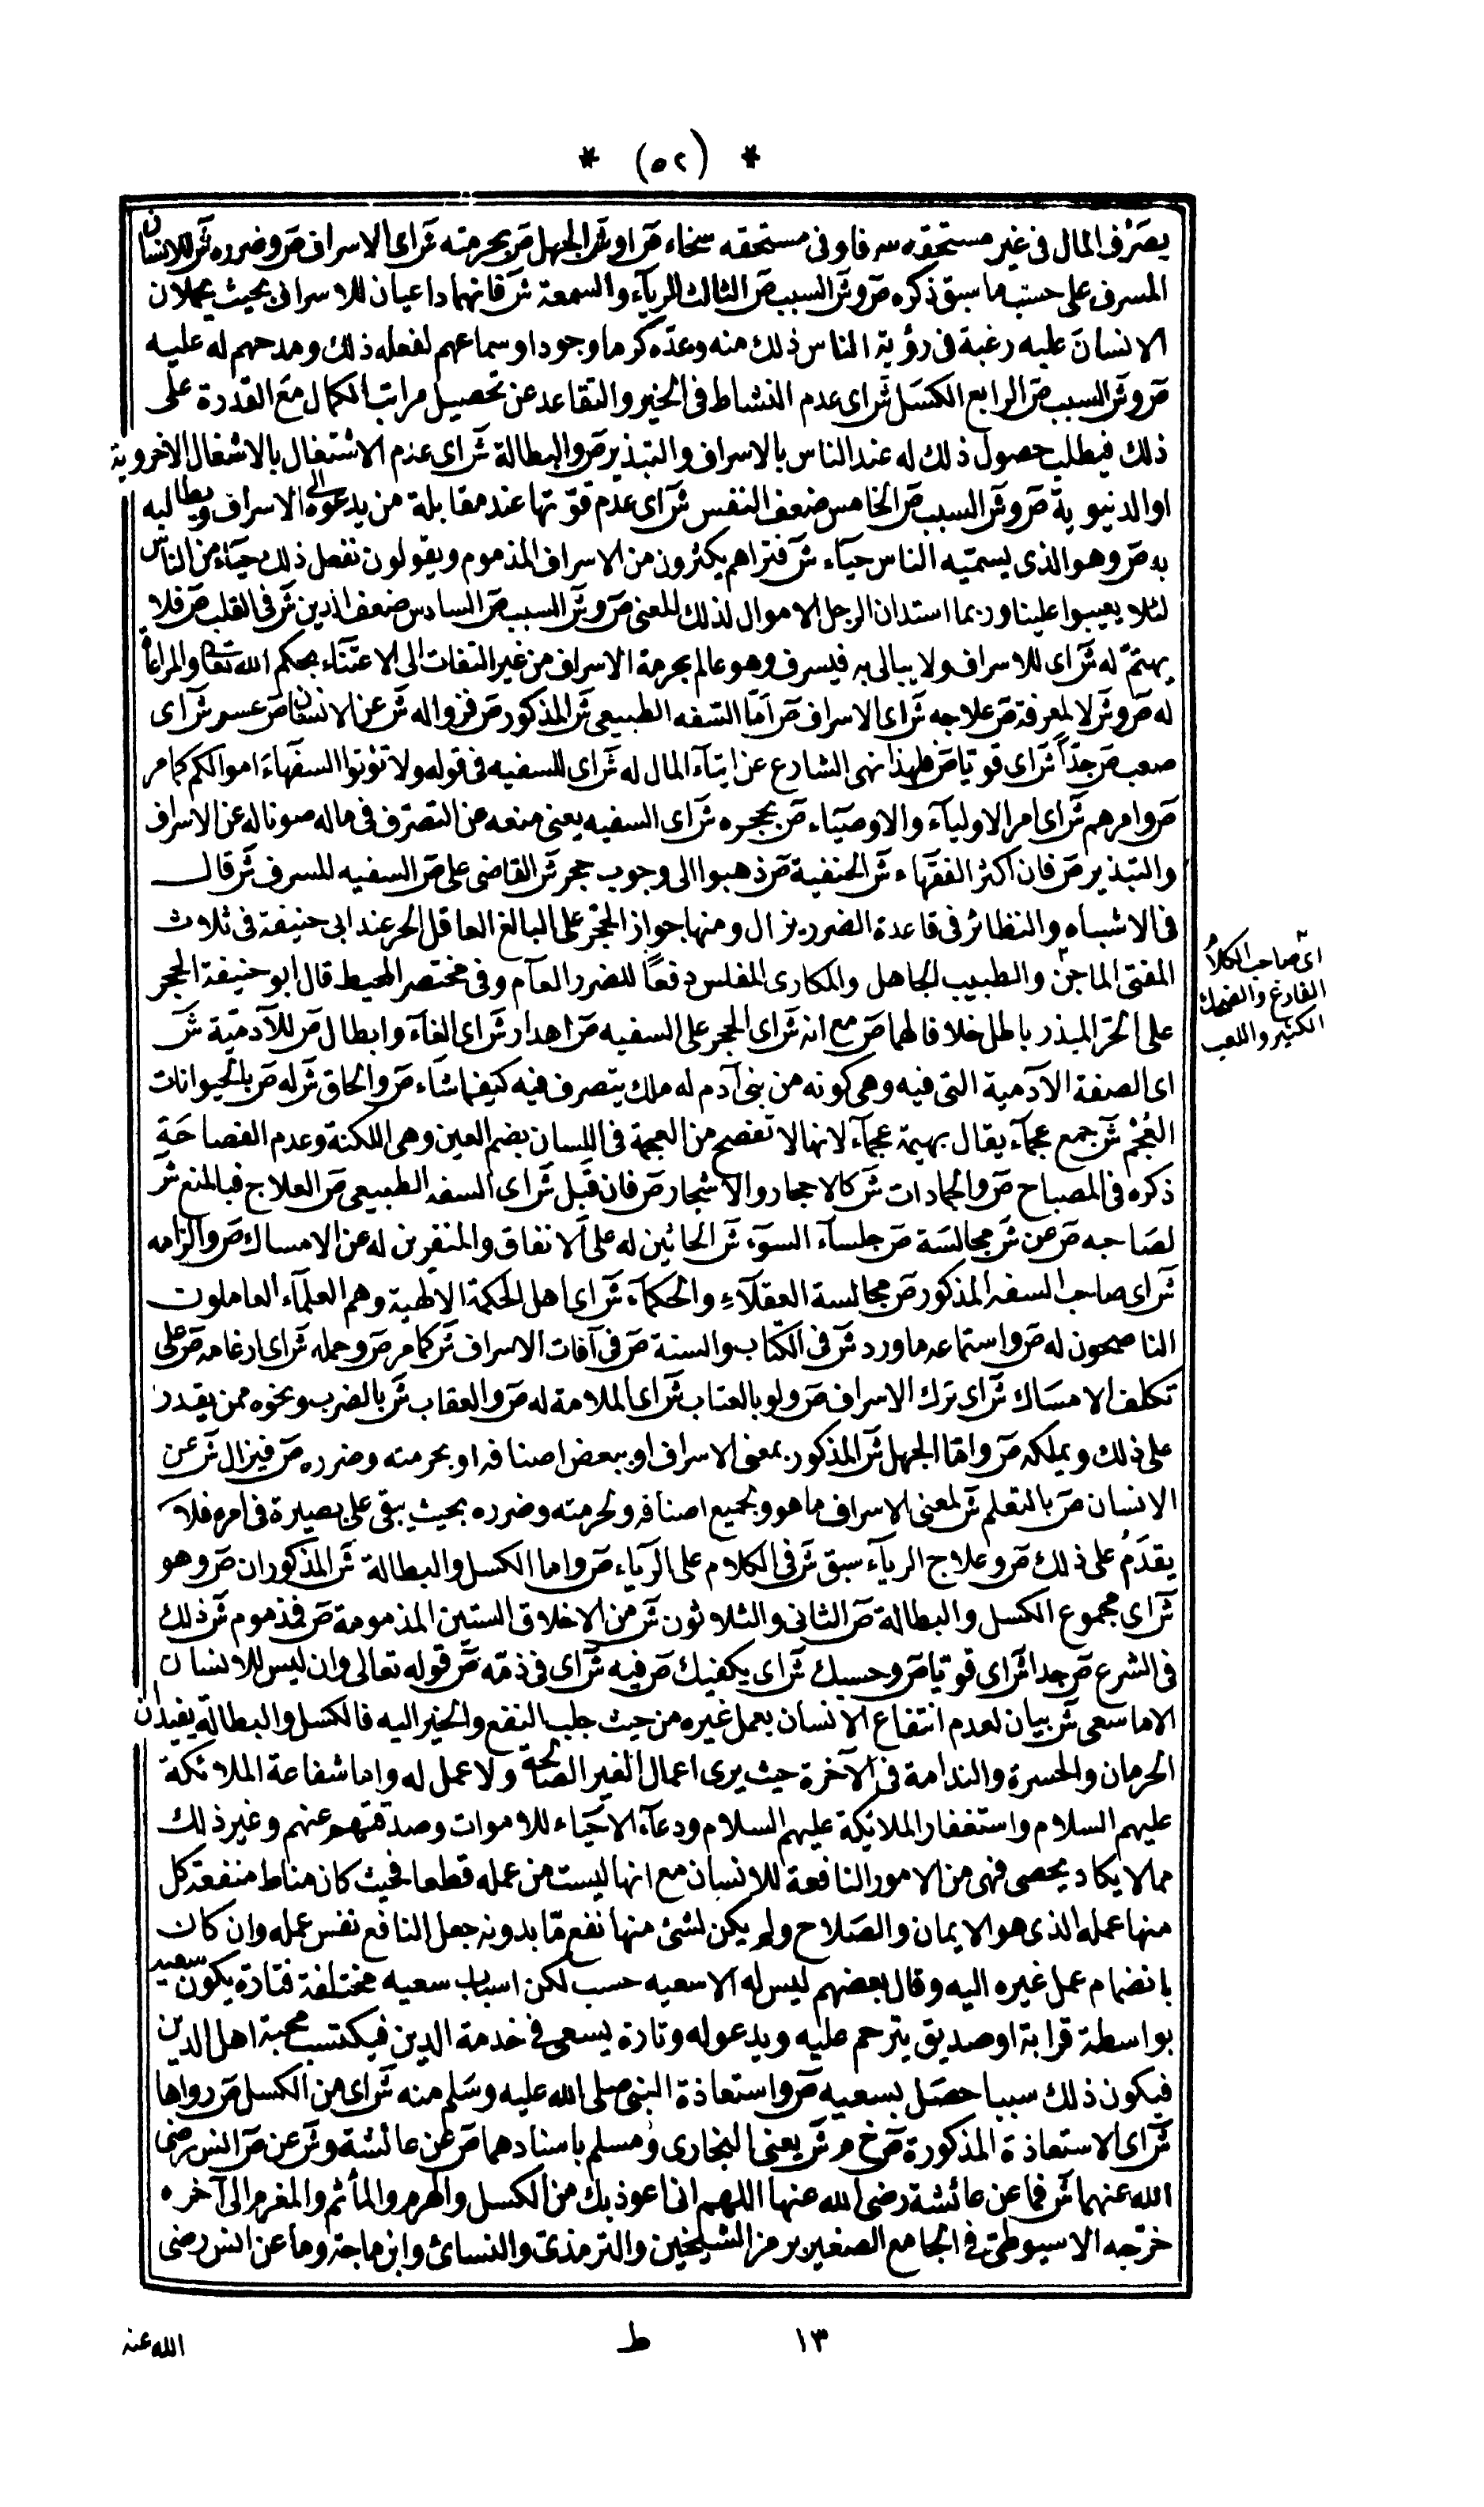 * (٥٢) *
يصرف المال في غير مستحقه سرفا وفي مستحقه سخاء ص او ش الجهل ص بحرمته ش اى الاسراف ص وضرره ش للانسان
المسرف على حسب ما سبق ذكره ص و ش السبب ص الثالث الرياء والسمعة ش فانهما داعيان للاسراف بحيث يحملان
الانسان عليه رغبة في رؤية الناس ذلك منه وعده كرما وجودا وسماعهم لفعله ذلك ومدحهم له عليه
ص و ش السبب ص الرابع الكسل ش اى عدم النشاط في الخير والتقاعد عن تحصيل مراتب الكمال مع القدرة على
ذلك فيطلب حصول ذلك له عند الناس بالاسراف والتبذير ص والبطالة ش اى عدم الاشتغال بالاشغال الاخروية
او الدنيوية ص و ش السبب ص الخامس ضعف النفس ش اى عدم قوتها عند مقابلة من يدعوه الى الاسراف ويطالبه
به ص وهو الذى يسميه الناس حياء ش فتراهم يكثرون من الاسراف المذموم ويقولون نفعل ذلك حياء من الناس
لئلا يعيبوا علينا وربما استدان الرجل الاموال لذلك المعنى ص و ش السبب ص السادس ضعف الدين ش في القلب ص فلا
يهتم له ش اى للاسراف ولا يبالى به فيسرف وهو عالم بحرمة الاسراف من غير التفات الى الاعتناء بحكم الله تعالى والمراعاة
له ص و ش لا لمعرفة ص علاجه ش اى الاسراف ص اما السفه الطبيعى ش المذكور ص فزواله ش عن الانسان ص عسر ش اى
صعب ص جدا ش اى قويا ص فلهذا نهى الشارع عن ايتاء المال له ش اى للسفيه في قوله ولا تؤتوا السفهاء اموالكم كما مر
ص وامرهم ش اى امر الاولياء والاوصياء ص بحجره ش اى السفيه يعنى منعه من التصرف في ماله صونا له عن الاسراف
والتبذير ص فان اكثر الفقهاء ش الحنفية ص ذهبوا الى وجوب حجر ش القاضى على ص السفيه المسرف ش قال
في الاشباه والنظائر في قاعدة الضرر يزال ومنها جواز الحجر على البالغ العاقل الحر عند ابى حنيفة في ثلاث
المفتى الماجن والطبيب الجاهل والمكارى المفلس دفعا للضرر العام وفي مختصر المحيط قال ابو حنيفة الحجر
على الحر المبذر باطل خلافا لهما ص مع انه ش اى الحجر على السفيه ص اهدار ش اى الغاء وابطال ص للآدمية ش
اى الصفة الآدمية التى فيه وهى كونه من بنى آدم له ملك يتصرف فيه كيفما شاء ص والحاق ش له ص بالحيوانات
العجم ش جمع عجماء يقال بهيمة عجماء لانها لا تفصح من العجمة في اللسان بضم العين وهى اللكنة وعدم الفصاحة
ذكره في المصباح ص والجمادات ش كالاحجار والاشجار ص فان قبل ش اى السفه الطبيعى ص العلاج فبالمنع ش
لصاحبه ص عن ش مجالسة ص جلساء السوء ش الحاثين له على الانفاق والمنفرين له عن الامساك ص والزامه
ش اى صاحب السفه المذكور ص مجالسة العقلاء والحكماء ش اى اهل الحكمة الالهية وهم العلماء العاملون
الناصحون له ص واستماعه ما ورد ش في الكتاب والسنة ص في آفات الاسراف ش كما مر ص وحمله ش اى ارغامه ص على
تكلف الامساك ش اى ترك الاسراف ص ولو بالعتاب ش اى الملامة له ص والعقاب ش بالضرب ونحوه ممن يقدر
على ذلك ويملكه ص واما الجهل ش المذكور بمعنى الاسراف او ببعض اصنافه او بحرمته وضرره ص فيزال ش عن
الانسان ص بالتعلم ش لمعنى الاسراف ما هو ولجميع اصنافه ولحرمته وضرره بحيث يبقى على بصيرة في امره فلا
يقدم على ذلك ص وعلاج الرياء سبق ش في الكلام على الرياء ص واما الكسل والبطالة ش المذكوران ص وهو
ش اى مجموع الكسل والبطالة ص الثانى والثلاثون ش من الاخلاق الستين المذمومة ص فمذموم ش ذلك
في الشرع ص جدا ش اى قويا ص وحسبك ش اى يكفيك ص فيه ش اى في ذمه ص قوله تعالى وان ليس للانسان
الا ما سعى ش بيان لعدم انتفاع الانسان بعمل غيره من حيث جلب النفع والخير اليه فالكسل والبطالة يفيدان
الحرمان والحسرة والندامة في الآخرة حيث يرى اعمال الغير الصالحة ولا عمل له واما شفاعة الملائكة
عليهم السلام واستغفار الملائكة عليهم السلام ودعاء الاحياء للاموات وصدقتهم عنهم وغير ذلك
مما لا يكاد يحصى فهى من الامور النافعة للانسان مع انها ليست من عمله قطعا فحيث كان مناط منفعة كل
منها عمله الذى هو الايمان والصلاح ولم يكن لشئ منها نفع ما بدونه جعل النافع نفس عمله وان كان
بانضمام عمل غيره اليه وقال بعضهم ليس له الا سعيه حسب لكن اسباب سعيه مختلفة فتارة يكون سعيه
بواسطة قرابة او صديق يترحم عليه ويدعو له وتارة يسعى في خدمة الدين فيكتسب محبة اهل الدين
فيكون ذلك سببا حصل بسعيه ص واستعاذة النبى صلى الله عليه وسلم منه ش اى من الكسل ص رواها
ش اى الاستعاذة المذكورة ص خ م ش يعنى البخارى ومسلم باسنادهما ص عن عائشة و ش عن ص انس رضى
الله عنهما ش فما عن عائشة رضى الله عنها اللهم انى اعوذ بك من الكسل والهرم والمأثم والمغرم الى آخره
خرجه الاسيوطى في الجامع الصغير برمز الشيخين والترمذى والنسائى وابن ماجة وما عن انس رضى
اى صاحب الكلام
الفارغ والضحك
الكثير واللعب
١٣ ط الله عنه